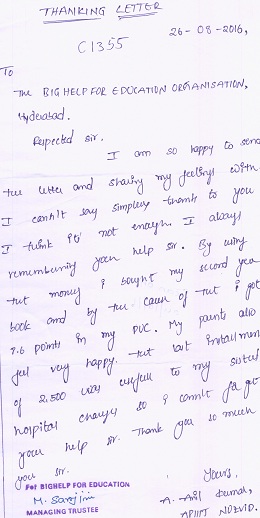 THANKING LETTER
26-08-2016,
C1355
To
The BIG HELP FOR EDUCATION ORGANISATION,
Hyderabad.
Respected sir.
I am so happy to send
tue letter and sharing my feelings with
I cannit say simplese thanks to you
I think its not enough. I always
remembering your help sir. By using
tut money i bought my second year
book and by tue cause of tut i got
9.6 points in my PUC. My parents also
feel very happy. tut last installmen
of 2,500 was usefull to my sister
hospital charges so i cannit forget
your help sir. Thank you so much
you sir.
For BIGHELP FOR EDUCATION
Yours,
M. Sarojini
MANAGING TRUSTEE
A. Anil kumar,
APIIIT NUZVID.